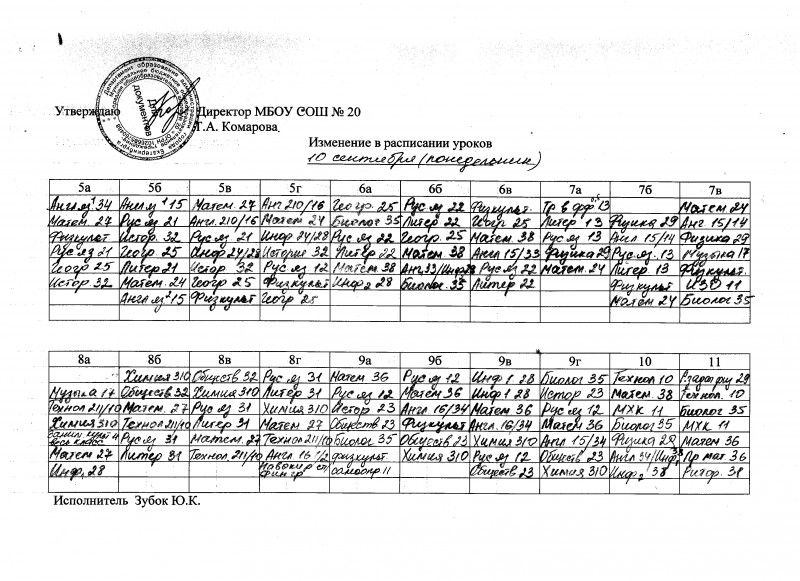 Утверждаю Директор МБОУ СОШ № 20
Т.А. Комарова
Изменение в расписании уроков
10 сентября (понедельник)
5а 5б 5в 5г 6а 6б 6в 7а 7б 7в
Англ яз 34 Англ 15 Матем. 27 Анг 210/16 Геогр. 25 Рус яз 22 Физкульт. Матем 24
Матем. 27 Рус яз 21 Англ. 210/16 Матем 24 Биолог 35 Литер 22 Геогр 25 Литер 13 Физика 29 Анг 15/14
Физкульт Истор. 32 Рус яз 21 Инф 24/28 Рус яз 22 Геогр. 25 Матем 38 Рус яз 13 Англ 15/14 Физика 29
Рус яз 21 Геогр 25 Инф 24/28 История 32 Литер 22 Матем 38 Англ 15/33 Физика 29 Рус яз. 13 Музыка 17
Геогр 25 Литер 21 Истор 32 Рус яз 12 Матем 38 Анг 33/Инф 28 Рус яз 22 Матем. 24 Литер. 13 Физкульт.
Истор 32 Матем. 24 Геогр 25 Физкульт Инф2 28 Биолог. 35 Литер 22 Физкульт ИЗО 11
Англ яз 15 Физкульт Геогр 25 Матем 24 Биолог 35
8а 8б 8в 8г 9а 9б 9в 9г 10 11
Химия 310 Обществ 32 Рус яз 31 Матем 36 Рус яз 12 Инф 1 28 Биолог 35 Технол 10
Музыка 17 Обществ 32 Химия 310 Литер 31 Рус яз 12 Матем 36 Инф 1 28 Истор 23 Матем. 38 Технол. 10
Технол 211/10 Матем. 27 Рус яз 31 Химия 310 Истор 23 Англ 16/34 Матем 36 Рус яз 12 МХК 11 Биолог 35
Химия 310 Технол 211/10 Литер 31 Матем 27 Обществ 23 Физкульт Англ. 16/34 Матем 36 Биолог 35 МХК 11
весь класс Рус яз 31 Матем. 27 Технол 211/10 Биолог 35 Обществ 23 Химия 310 Англ 15/34 Физика 29 Матем 36
Матем 27 Литер 31 Технол 211/10 Англ 16 Физкульт Химия 310 Рус яз 12 Обществ 23 Англ 34/Инф1 38 Пр мат 36
Инф, 28 Обществ 23 Химия 310 Инф2 38 Ритор. 31
Исполнитель Зубок Ю.К.